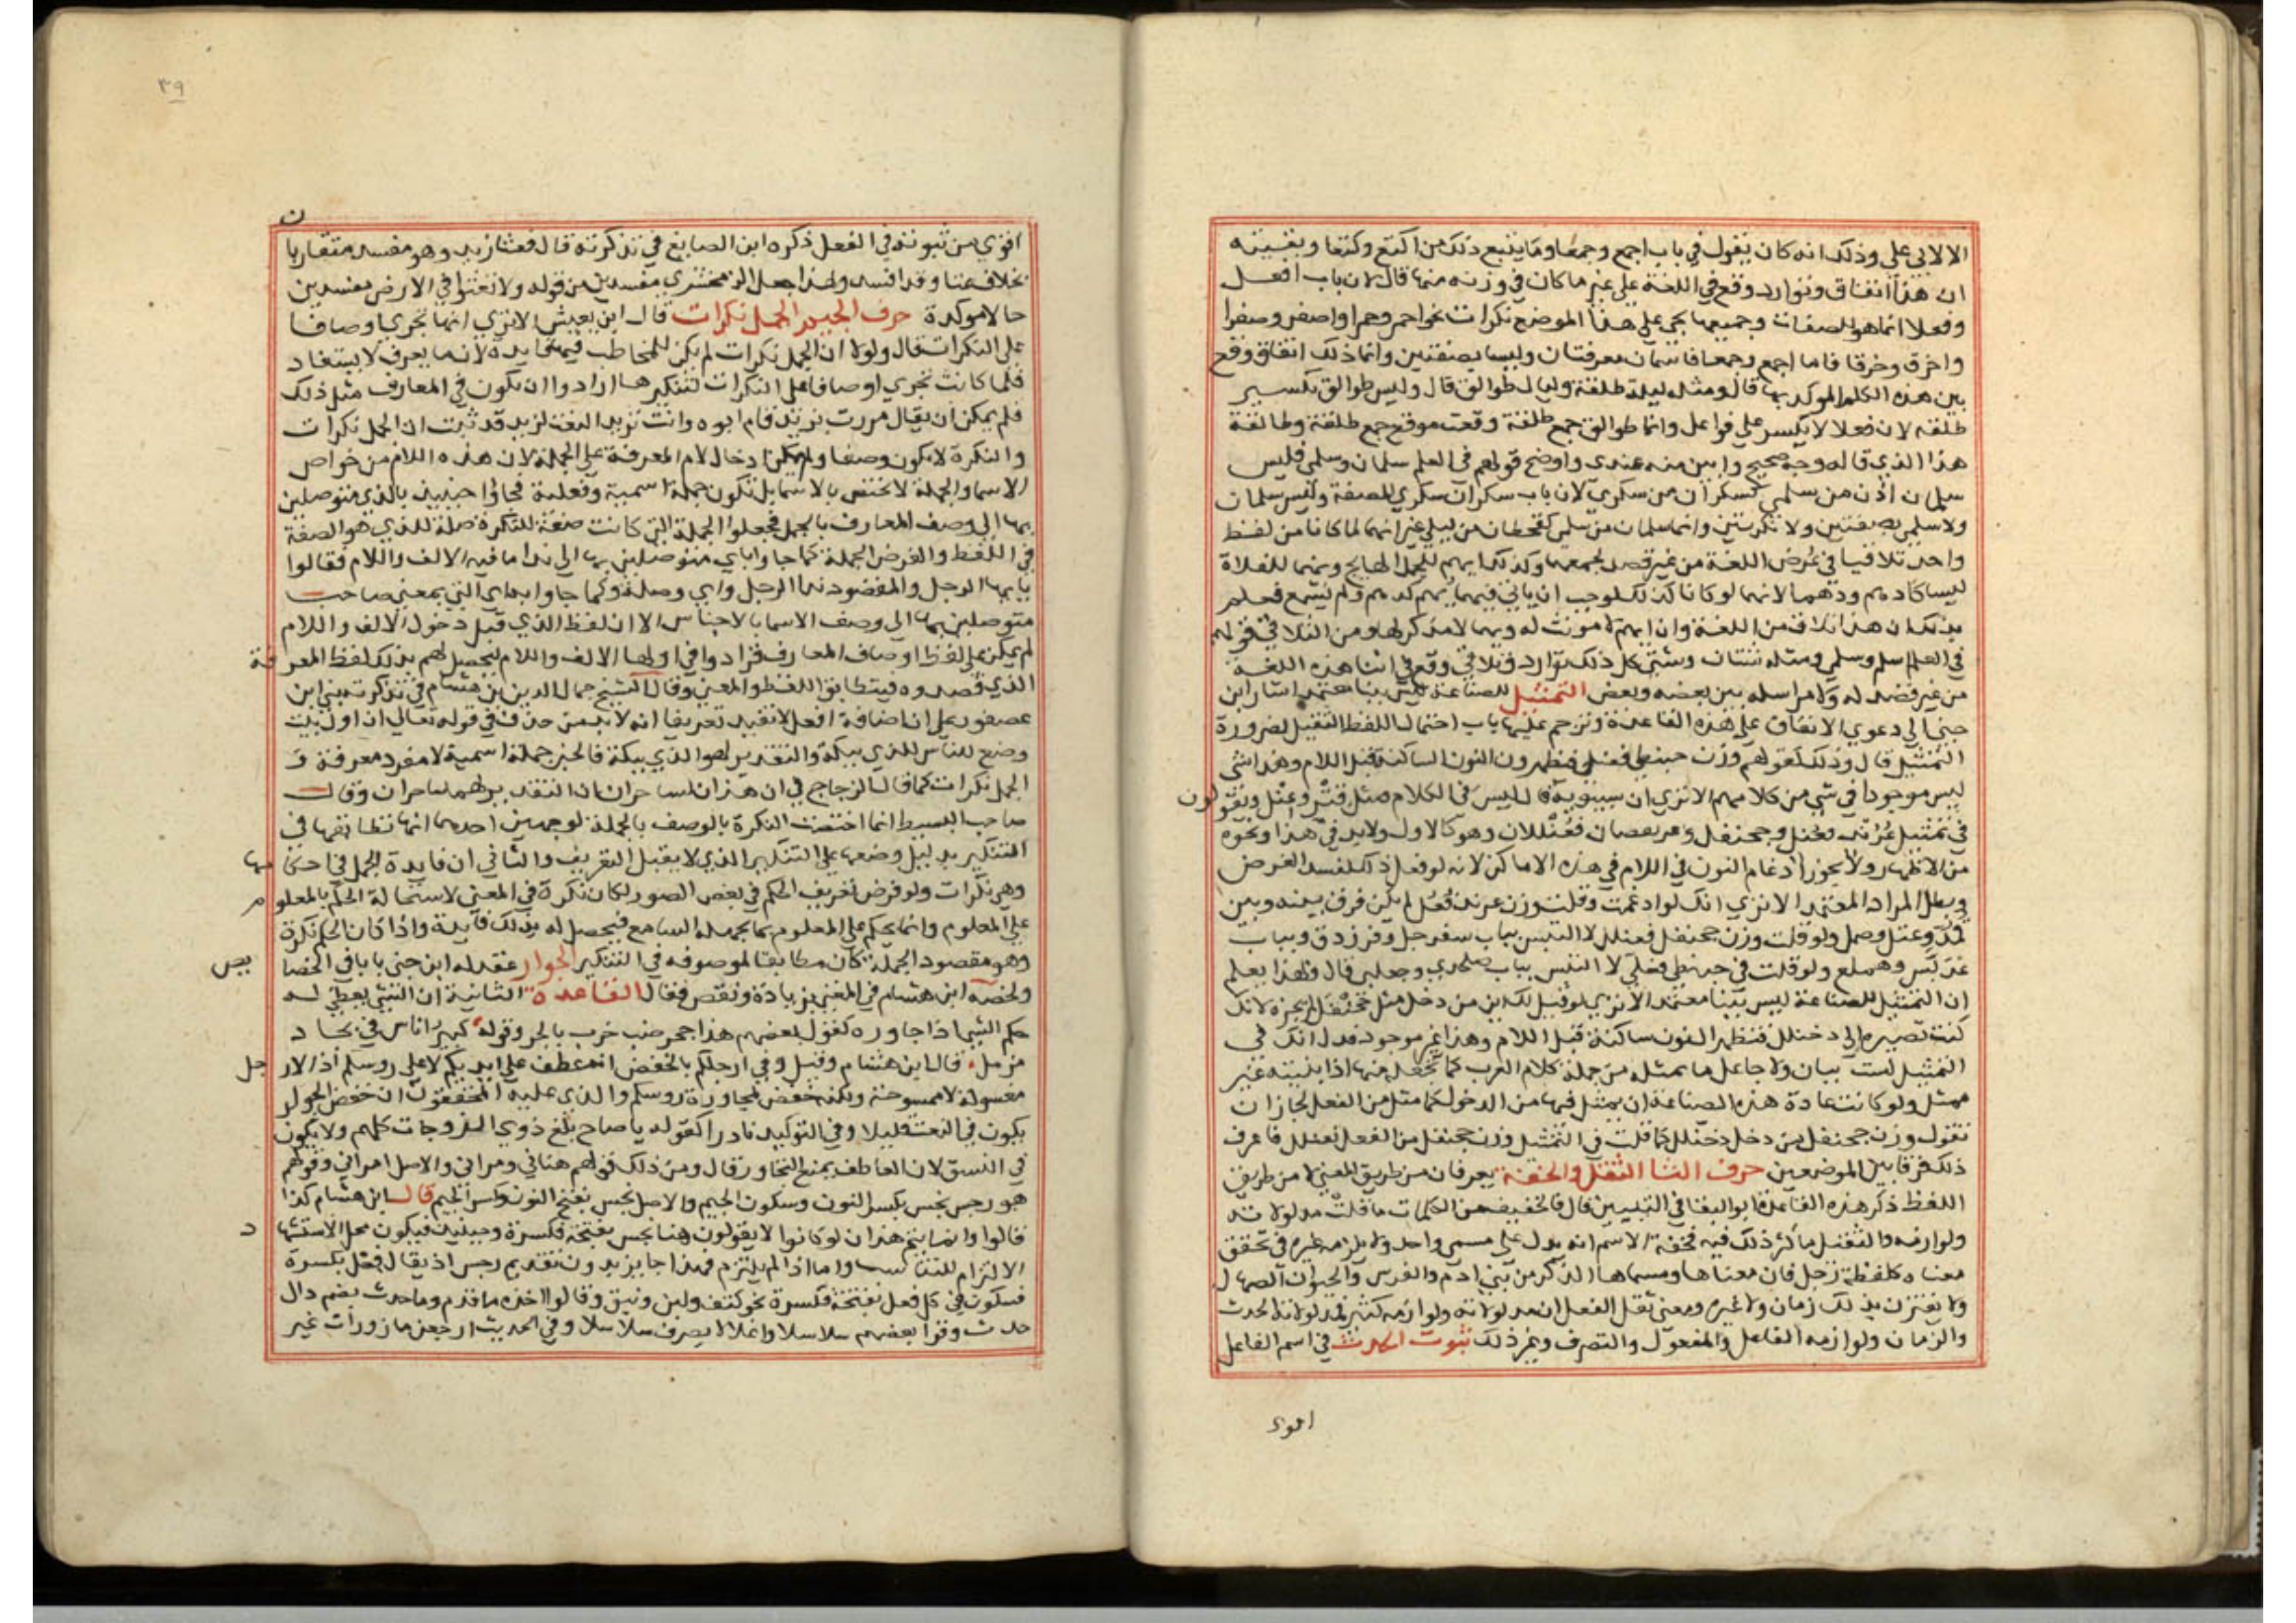 الا لابي علي وذلك انه كان يقول في باب اجمع وجمعا وما يتبع ذلك من اكتع وكتعا وبقيته
ان هذا اتفاق وتوارد وقع في اللغة على غير ما كان في وزنه منها قال لان باب افعل
وفعلا انما هو للصفات وجميعها يجي على هذا الموضع نكرات نحو احمر وحمرا واصفر وصفرا
واخرق وخرقا فاما اجمع وجمعا فاسمان معرفتان وليسا بصفتين وانما ذلك اتفاق وقع
بين هذه الكلم الموكد بها قال ومثله ليلة طلقة وليال طوالق قال وليس طوالق تكسير
طلقه لان فعلا لا يكسر على فواعل وانما طوالق جمع طالقة وقعت موقع جمع طلقة وطالقة
هذا الذي قاله وجه صحيح وابين منه عندي واوضح قولهم في العلم سلمان وسلمى فليس
سلمان اذن من سلمى كسكران من سكري لان باب سكران سكري للصفة وليس سلمان
ولا سلمى بصفتين ولا نكرتين وانما سلمان من سلمى كقحطان من ليلى غير انهما لما كانا من لفظ
واحد تلاقيا في عرض اللغة من غير قصد لجمعهما وكذلك ايهم للجمل الهايج ويهما للفلاة
ليسا كادهم ودهما لانهما لو كانا كذلك لوجب ان ياتي فيهما يهم كدهم ولم يسمع فعلم
بذلك ان هذا تلاق من اللغة وان ايهم لا مونث له ويهما لا مذكر لها ومن التلاقي قولهم
في العلم اسلم وسلمى ومثله شتان وشتى كل ذلك توارد وتلاق وقع في اثنا هذه اللغة
من غير قصد له ولا مراسلة بين بعضه وبعض التمثيل للصناعة ليس ببنا معتمد اشار ابن
جني الى دعوي الاتفاق على هذه القاعدة وترجم عليها باب احتمال اللفظ الثقيل لضرورة
التمثيل قال وذلك كقولهم وزن حبنطى فعنلى فيظهرون النون الساكنة قبل اللام وهذا شي
ليس موجودا في شي من كلامهم الا تري ان سيبويه قال ليس في الكلام مثل قنر وعنل ويقولون
في تمثيل عرند فعنل وجحنفل فعنلل وعريقصان فعنللان وهو كالاول ولابد في هذا ونحوه
من الاظهار ولا يجوز ادغام النون في اللام في هذه الاماكن لانه لو فعل ذلك لفسد الغرض
وبطل المراد المعتمد الا تري انك لو ادغمت وقلت وزن عرند فعل لم يكن فرق بينه وبين
قمد وعتل وصمل ولو قلت وزن جحنفل فعلل لا التبس بباب سفرجل وفرزدق وبباب
عدبس وهملع ولو قلت في حبنطى فعلى لا التبس بباب صلخدي وجلعبى قال وبهذا يعلم
ان التمثيل للصناعة ليس ببنا معتمد الا تري لو قيل لك ابن من دخل مثل جحنفل لم يجزه لانك
كنت تصيره الى دخنلل فتظهر النون ساكنة قبل اللام وهذا غير موجود فدل انك في
التمثيل لست بيان ولا جاعل ما تمثله من جملة كلام العرب كما تجعله منها اذا بنيته غير
ممثل ولو كانت عادة هذه الصناعة ان يمثل فيها من الدخول كما مثل من الفعل لجاز ان
تقول وزن جحنفل من دخل دخنلل كما قلت في التمثيل وزن جحنفل من الفعل فعنلل فاعرف
ذلك فرقا بين الموضعين حرف الثا الثقل والخفة يعرفان من طريق المعنى لا من طريق
اللفظ ذكر هذه القاعدة ابو البقا في التبيين قال فالخفيف من الكلمات ما قلت مدلولاته
ولوازمه والثقيل ما كثر ذلك فيه فخفة الاسم انه يدل على مسمى واحد ولا يلزمه غيره في تحقق
معناه كلفظة رجل فان معناها ومسماها الذكر من بني ادم والفرس والحيوان الصهال
ولا يقترن بذلك زمان ولا غيره ومعنى ثقل الفعل ان مدلولاته ولوازمه كثيرة فمدلولاته الحدث
والزمان ولوازمه الفاعل والمفعول والتصرف وغير ذلك ثبوت الحدث في اسم الفاعل
اقوي
٣٩
اقوي من ثبوته في الفعل ذكره ابن الصايغ في تذكرته قال فعثا زيد وهو مفسد متقاربان
بخلاف عثا وقد افسد ولهذا جعل الزمخشري مفسدين من قوله ولا تعثوا في الارض مفسدين
حالا موكدة حرف الجيم الجمل نكرات قال ابن يعيش الا تري انها تجري اوصافا
على النكرات قال ولولا ان الجمل نكرات لم يكن للمخاطب فيها فايدة لان ما يعرف لا يستفاد
فلما كانت تجري اوصافا على النكرات لتنكيرها ارادوا ان يكون في المعارف مثل ذلك
فلم يمكن ان يقال مررت بزيد قام ابوه وانت تريد النعت لزيد قد ثبت ان الجمل نكرات
والنكرة لا يكون وصفا ولم يمكن ادخال لام المعرفة على الجملة لان هذه اللام من خواص
الاسما والجملة لا تختص بالاسما بل تكون جملة اسمية وفعلية فجاوا حينيذ بالذي متوصلين
بها الى وصف المعارف بالجمل فجعلوا الجملة التي كانت صفة للنكرة صلة للذي هو الصفة
في اللفظ والغرض الجملة كما جاوا باي متوصلين بها الى ندا ما فيه الالف واللام فقالوا
يا ايها الرجل والمقصود ندا الرجل واي وصلة وكما جاوا بذي التي بمعنى صاحب
متوصلين بها الى وصف الاسما بالاجناس الا ان لفظ الذي قبل دخول الالف واللام
لم يكن على لفظ اوصاف المعارف فزادوا في اولها الالف واللام ليحصل لهم بذلك لفظ المعرفة
الذي قصدوه فيتطابق اللفظ والمعنى وقال الشيخ جمال الدين بن هشام في تذكرته بنى ابن
عصفور على ان اضافة افعل لا تفيد تعريفا انه لابد من حذف في قوله تعالى ان اول بيت
وضع للناس للذي ببكة والتقدير لهو الذي ببكة فالخبر جملة اسمية لا مفرد معرفة و
الجمل نكرات كما قال الزجاج في ان هذان لساحران ان التقدير لهما ساحران وقال
صاحب البسيط انما اختصت النكرة بالوصف بالجملة لوجهين احدهما انها تطابقها في
التنكير بدليل وضعها على التنكير الذي لا يقبل التعريف والثاني ان فايدة الجمل في احكامها
وهي نكرات ولو فرض تعريف الحكم في بعض الصور لكان نكرة في المعنى لاستحالة الحكم بالمعلوم
على المعلوم وانما يحكم على المعلوم بما يجهله السامع فيحصل له بذلك فايدة واذا كان الحكم نكرة
وهو مقصود الجملة كان مطابقا لموصوفه في التنكير الجوار عقد له ابن جني بابا في الخصايص
ولخصه ابن هشام في المغني بزيادة ونقص فقال القاعدة الثانية ان الشي يعطي له
حكم الشي اذا جاوره كقول بعضهم هذا جحر ضب خرب بالجر وقوله كبير اناس في بجاد
مزمل قال ابن هشام وقيل وفي ارجلكم بالخفض انه عطف على ايديكم لا على روسكم اذ الارجل
مغسولة لا ممسوحة ولكنه خفض لمجاورة روسكم والذي عليه المحققون ان خفض الجوار
يكون في النعت قليلا وفي التوكيد نادرا كقوله يا صاح بلغ ذوي الزوجات كلهم ولا يكون
في النسق لان العاطف يمنع التجاور قال ومن ذلك قولهم هناني ومراني والاصل امراني وقولهم
هو رجس نجس بكسر النون وسكون الجيم والاصل نجس بفتح النون وكسر الجيم قال ابن هشام كذا
قالوا وانما يتم هذا ان لو كانوا لا يقولون هنا نجس بفتحة فكسرة وحينيذ فيكون محل الاستشهاد
الالتزام للتناسب واما اذا لم يلتزم فهذا جايز بدون تقديم رجس اذ يقال فعل بكسرة
فسكون في كل فعل بفتحة فكسرة نحو كتف ولبن ونبق وقالوا اخذه ما قدم وما حدث بضم دال
حدث وقرا بعضهم سلاسلا واغلالا بصرف سلاسلا وفي الحديث ارجعن مازورات غير